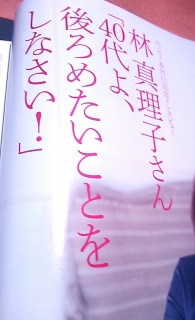 林 真理子さん
「40代よ、
後ろめたいことを
しなさい!」